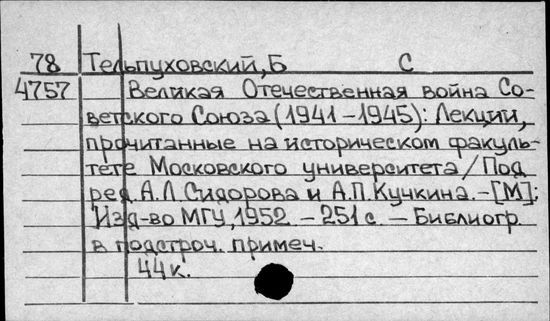 78 Тельпуховский, Б С
4757 Великая Отечественная война Со-
ветского Союза (1941-1945): Лекции,
прочитанные на историческом факуль-
тете Московского университета / Под
ред. А.Л. Сидорова и А.П. Кучкина. - [М]:
Изд-во МГУ, 1952. - 251 с. - Библиогр.
в подстроч. примеч.
44 к.